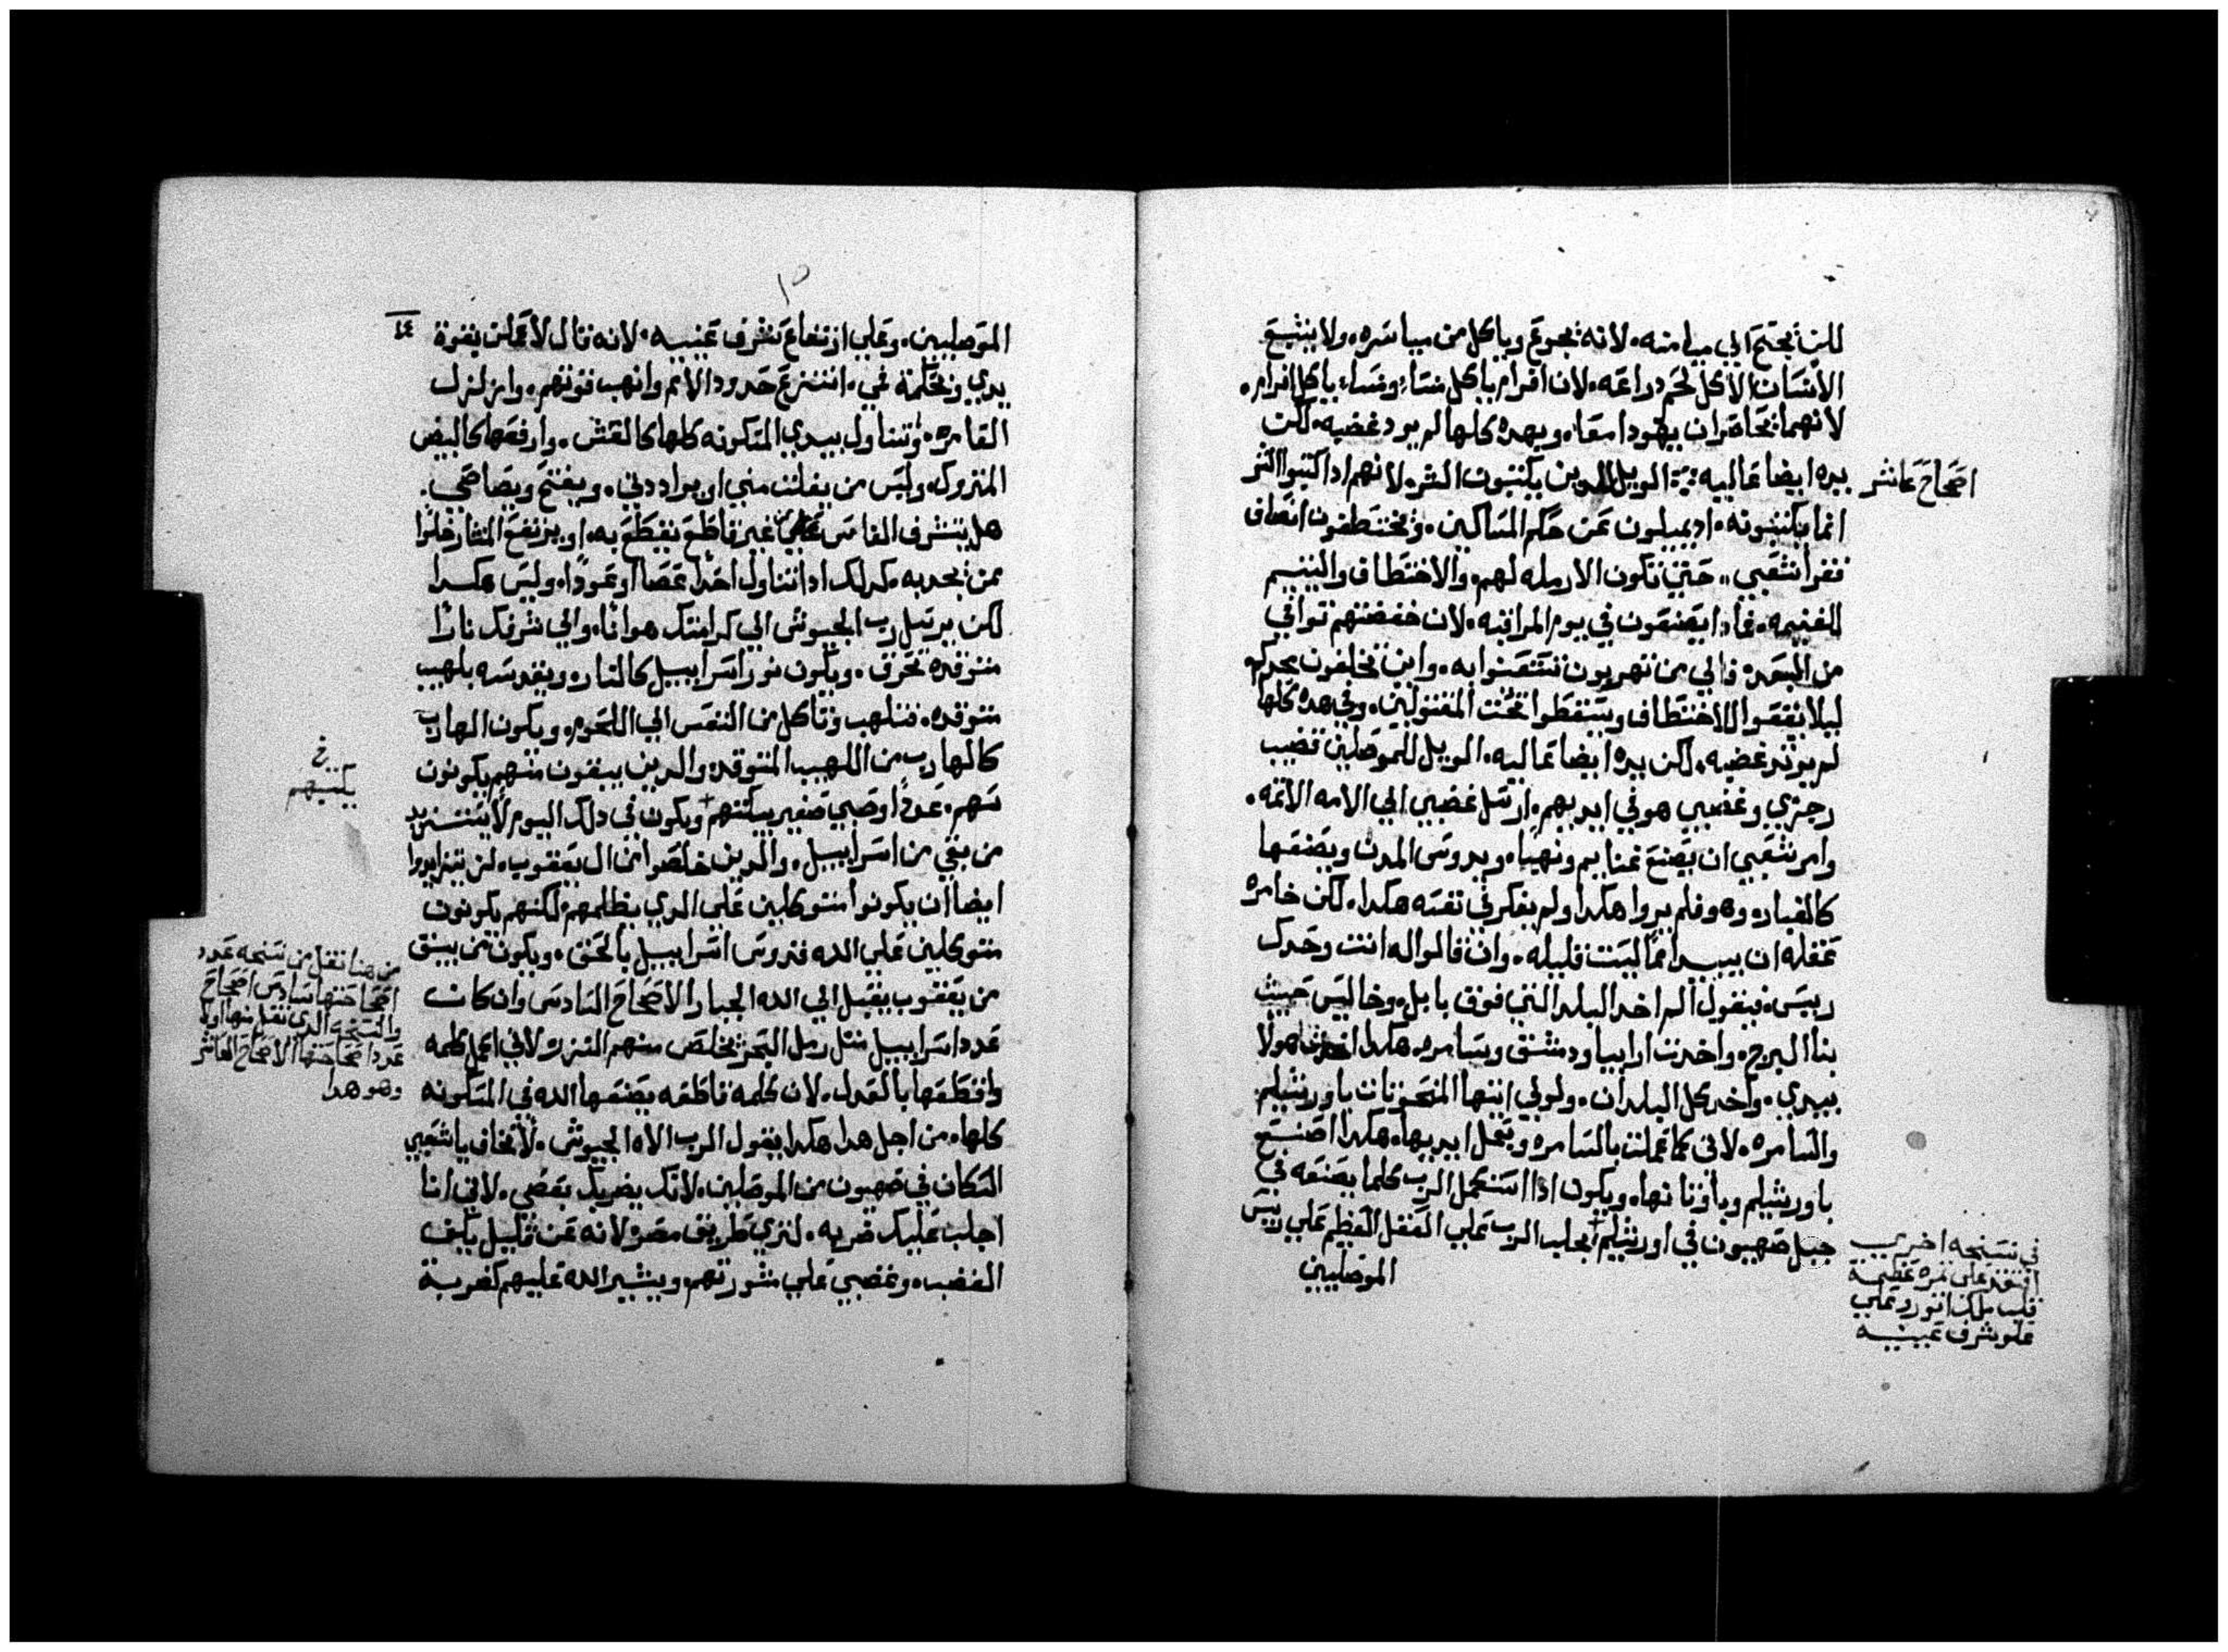 لكن يجتح الي ميامنه. لانه يجوع وياكل من مياسره. ولا يشبع
الانسان الاكل لحم دراعه. لان افرام ياكل منسا. ومنسا ياكل افرام.
لانهما يحاصران يهودا معا. وبهده كلها لم يرد غضبه. لكن
اصحاح عاشر
يده ايضا عاليه الويل للدين يكتبون الشر. لانهم ادا كتبوا الشر
انما يكتبونه. اد يميلون عن حكم المساكين. ويختطفون انصاف
فقرا شعبي. حتي تكون الارمله لهم. والاختطاف واليتيم
للغنيمه. فمادا يصنعون في يوم المراقبه. لان ضغضتهم توافي
من البعد. والي من تهربون لتتعنوا به. واين تخلفون مجدكم
ليلا يقعوا الاختطاف ويسقطوا تحت المقتولين. وفي هده كلها
لم يرتد غضبه. لكن يده ايضا عاليه. الويل للموصليين قضيب
رجزي وغضبي هو في ايديهم. ارسل غضبي الي الامه الاتمه.
وامر شعبي ان يصنع غنايم ونهبا. ويدوس المدن ويصنعها
كالغبار. وهو فلم يروا هكدا ولم يفكر في نفسه هكدا. لكن خامره
عقله ان يبيد امما ليست قليله. وان قالوا له انت وحدك
ريس. فيقول الم اخد البلد التي فوق بابل. وخاليس حيث
بنا البرج. واخدت ارابيا ودمشق وسامره. هكدا اخدت هولا
بيدي. واخد كل البلدان. ولولي ايتها المنحوتات باورشليم
والسامره. لاني كما عملت بالسامره وبعمل ايديها. هكدا اصنع
باورشليم وباوتانها. ويكون ادا استكمل الرب كلما يصنعه في
جبل صهيون في اورشليم يجلب الرب علي العقل العظيم علي ريس
الموصليين
في نسخه اخري
افتقد علي تمره عظيمة
قلب ملك اتور وعلي
علو شرف عينيه
١٤
الموصليين. وعلي ارتفاع شرف عينيه. لانه قال لاعملن بقوة
يدي وبحكمة فهمي. انتزع حدود الامم وانهب قوتهم. وازلزل
القامره. واتناول بيدي المسكونه كلها كالعش. وارفعها كالبيض
المتروك. وليس من يفلت مني او يراددني. ويفتح ويصاصي.
هل يتشرف الفاس غير قاطع يقطع به. او يرتفع المنشار خلوا
ممن يجدبه. كدلك ادا تناول احدا عصا او عودا. وليس هكدا
لكن يرسل رب الجيوش الي كرامتك هوانا. والي شرفك نارا
متوقده تحرق. ويكون نور اسراييل كالنار. ويقدسه بلهيب
متوقده. فتلهب وتاكل من النفس الي اللحوم. ويكون الهارب
كالهارب من اللهيب المتوقد. والدين يبقون منهم يكونون
خ
يكتبهم
منهم. عددا وصبي صغير يكتبهم ويكون في دلك اليوم لا يستزيد
من بقي من اسراييل. والدين خلصوا من ال يعقوب. لن يتزايدوا
ايضا ان يكونوا متوكلين علي الدي يظلمهم. لكنهم يكونون
متوكلين علي الله قدوس اسراييل بالحق. ويكون من يبق
من يعقوب يقبل الي الله الجبار الاصحاح السادس وان كانت
عدد اسراييل مثل رمل البحر يخلص منهم النزر. لاني اكمل كلمه
واقطعها بالعدل. لان كلمه قاطعه يصنعها الله في المسكونه
كلها. من اجل هدا هكدا يقول الرب الاه الجيوش. لا تخاف يا شعبي
السكان في صهيون من الموصليين. لانك يضربك بعصي. لاني انا
اجلب عليك ضربه. لتري طريق مصر. لانه عن قليل يكف
الغضب. وغضبي علي مشورتهم. ويشير الله عليهم كضربة
من هنا نقل من نسخه عدد
اصحاحتها سادس اصحاح
والنسخه الدي نقل منها اولا
عدد اصحاحتها الاصحاح العاشر
وهو هدا